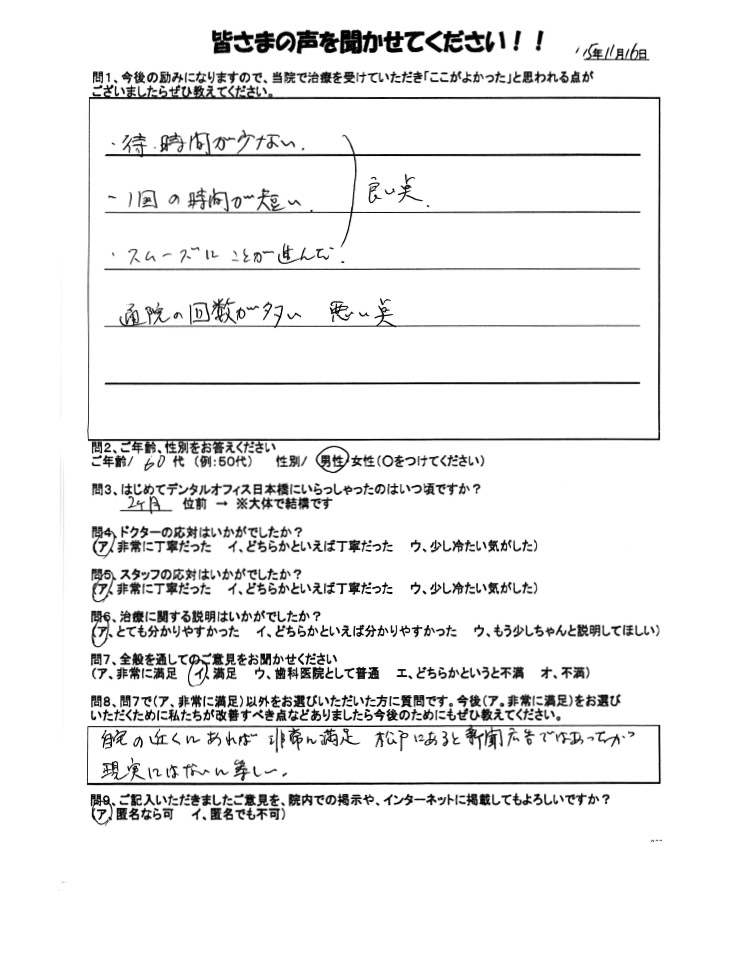 皆さまの声を聞かせてください！！ '15年11月16日
問1、今後の励みになりますので、当院で治療を受けていただき「ここがよかった」と思われる点が
ございましたらぜひ教えてください。
・待時間が少ない.
・1回の時間が短い. 良い点.
・スムーズにことが進んだ.
通院の回数が多い 悪い点
問2、ご年齢、性別をお答えください
ご年齢/ 60 代 (例:50代) 性別/ 男性・女性(〇をつけてください)
問3、はじめてデンタルオフィス日本橋にいらっしゃったのはいつ頃ですか？
2ヶ月 位前 → ※大体で結構です
問4、ドクターの応対はいかがでしたか？
(ア、非常に丁寧だった イ、どちらかといえば丁寧だった ウ、少し冷たい気がした)
問5、スタッフの応対はいかがでしたか？
(ア、非常に丁寧だった イ、どちらかといえば丁寧だった ウ、少し冷たい気がした)
問6、治療に関する説明はいかがでしたか？
(ア、とても分かりやすかった イ、どちらかといえば分かりやすかった ウ、もう少しちゃんと説明してほしい)
問7、全般を通してのご意見をお聞かせください
(ア、非常に満足 イ、満足 ウ、歯科医院として普通 エ、どちらかというと不満 オ、不満)
問8、問7で(ア、非常に満足)以外をお選びいただいた方に質問です。今後(ア。非常に満足)をお選び
いただくために私たちが改善すべき点などありましたら今後のためにもぜひ教えてください。
自宅の近くにあれば 非常に満足 松戸にあると新聞広告ではあったが
現実にはないに等しい。
問9、ご記入いただきましたご意見を、院内での掲示や、インターネットに掲載してもよろしいですか？
(ア、匿名なら可 イ、匿名でも不可)